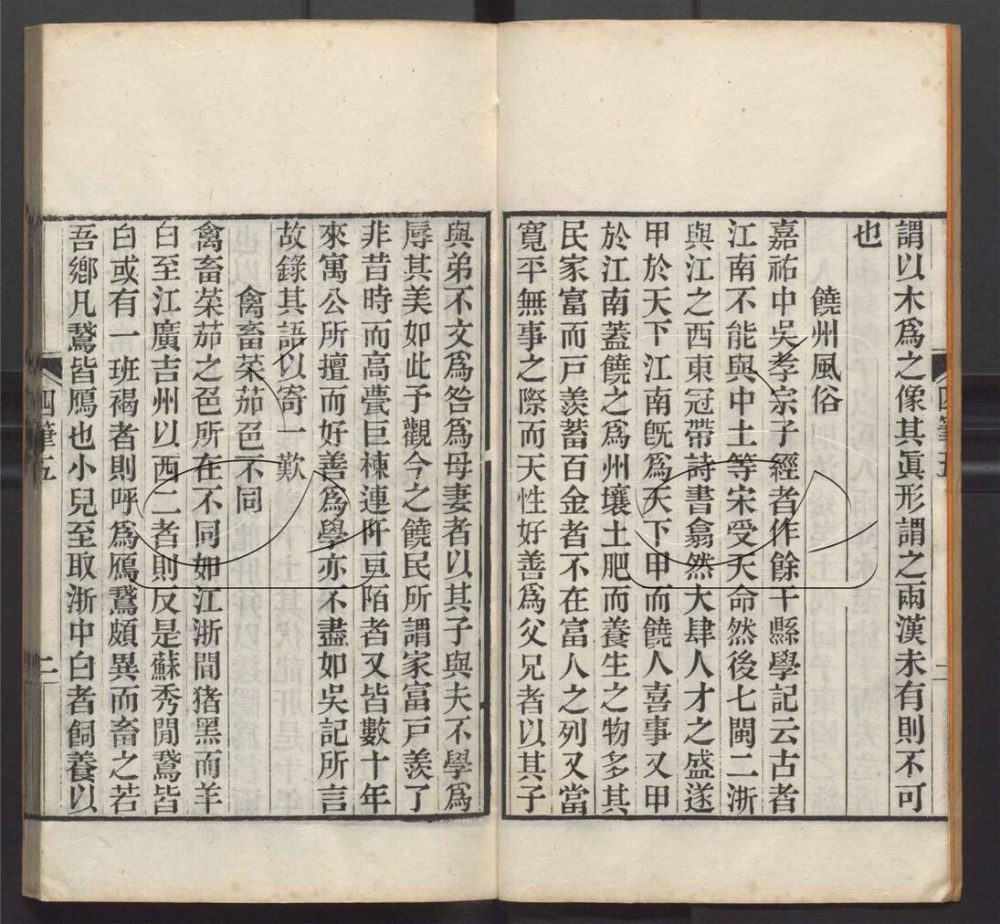 謂以木爲之像其眞形謂之兩漢未有則不可
也
饒州風俗
嘉祐中吳孝宗子經者作餘干縣學記云古者
江南不能與中土等宋受天命然後七閩二浙
與江之西東冠帶詩書翕然大肆人才之盛遂
甲於天下江南旣爲天下甲而饒人喜事又甲
於江南蓋饒之爲州壤土肥而養生之物多其
民家富而戸羨蓄百金者不在富人之列又當
寬平無事之際而天性好善爲父兄者以其子
與弟不文爲咎爲母妻者以其子與夫不學爲
辱其美如此予觀今之饒民所謂家富戸羨了
非昔時而高甍巨棟連阡亘陌者又皆數十年
來寓公所擅而好善爲學亦不盡如吳記所言
故錄其語以寄一歎
禽畜菜茄色不同
禽畜菜茄之色所在不同如江浙間猪黑而羊
白至江廣吉州以西二者則反是蘇秀間鵞皆
白或有一班褐者則呼爲鴈鵞頗異而畜之若
吾鄉凡鵞皆鴈也小兒至取浙中白者飼養以
四筆五
二